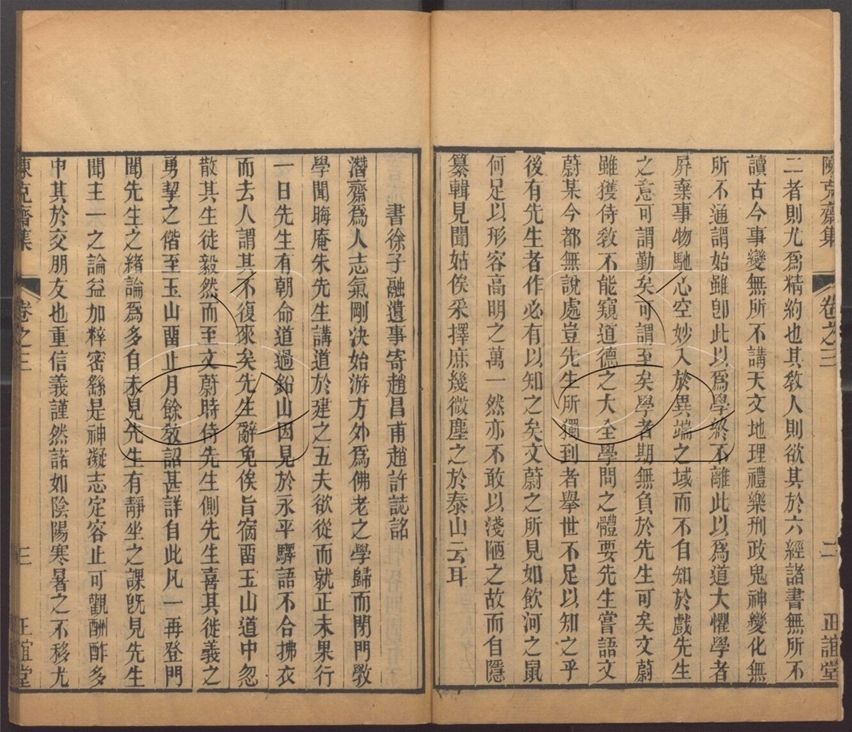 陳克齋集 卷之三 二 正誼堂
二者則尤爲精約也其敎人則欲其於六經諸書無所不
讀古今事變無所不講天文地理禮樂刑政鬼神變化無
所不通謂始雖卽此以爲學終不離此以爲道大懼學者
屛棄事物馳心空妙入於異端之域而不自知於戲先生
之意可謂勤矣可謂至矣學者期無負於先生可矣文蔚
雖獲侍敎不能窺道德之大全學問之體要先生嘗語文
蔚某今都無說處豈先生所獨到者舉世不足以知之乎
後有先生者作必有以知之矣文蔚之所見如飲河之鼠
何足以形容高明之萬一然亦不敢以淺陋之故而自隱
纂輯見聞姑俟采擇庶幾微塵之於泰山云耳
書徐子融遺事寄趙昌甫趙許誌銘
潛齋爲人志氣剛決始游方外爲佛老之學歸而閉門敎
學聞晦庵朱先生講道於建之五夫欲從而就正未果行
一日先生有朝命道過鉛山因見於永平驛語不合拂衣
而去人謂其不復來矣先生辭免俟旨宿畱玉山道中忽
散其生徒毅然而至文蔚時侍先生側先生喜其徙義之
勇挈之偕至玉山畱止月餘敎詔甚詳自此凡一再登門
聞先生之緒論爲多自未見先生有靜坐之課旣見先生
聞主一之論益加粹密繇是神凝志定容止可觀酬酢多
中其於交朋友也重信義謹然諾如陰陽寒暑之不移尤
陳克齋集 卷之三 三 正誼堂